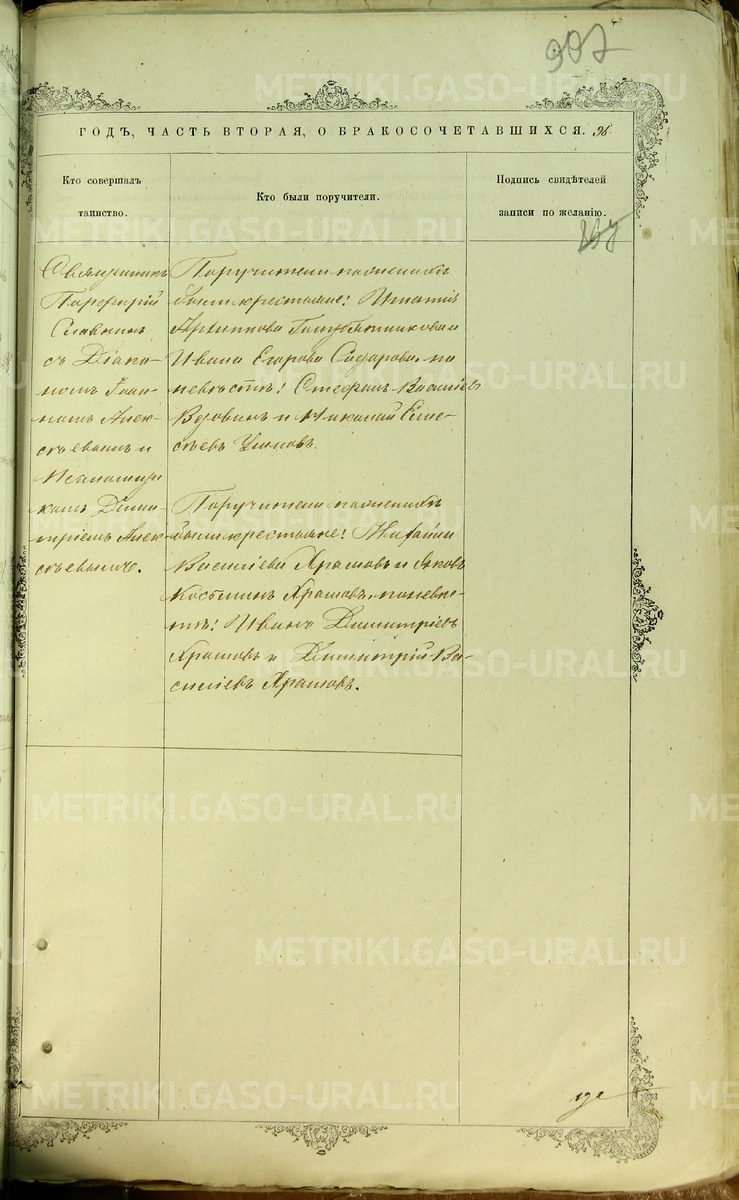 907
ГОДЪ, ЧАСТЬ ВТОРАЯ, О БРАКОСОЧЕТАВШИХСЯ. 96.
Кто совершалъ
таинство.
Кто были поручители.
Подпись свидѣтелей
записи по желанію.
Священникъ
Порфирій
Славнинъ
съ Діако-
номъ Іоан-
номъ Алек-
сѣевымъ и
Псаломщи
комъ Дими-
тріемъ Алек
сѣевымъ.
Поручители по женихѣ
были крестьяне: Игнатій
Архиповъ Голубятниковъ и
Иванъ Егоровъ Сидоровъ, по
невѣстѣ: Стефанъ Василіевъ
Вдовинъ и Николай Ели-
сѣевъ
Поручители по женихѣ
были крестьяне: Михаилъ
Василіевъ Храмовъ и Яковъ
Косьминъ Храмовъ, по невѣс-
тѣ: Иванъ Димитріевъ
Храмовъ и Димитрій Ва-
силіевъ Храмовъ.
METRIKI.GASO-URAL.RU